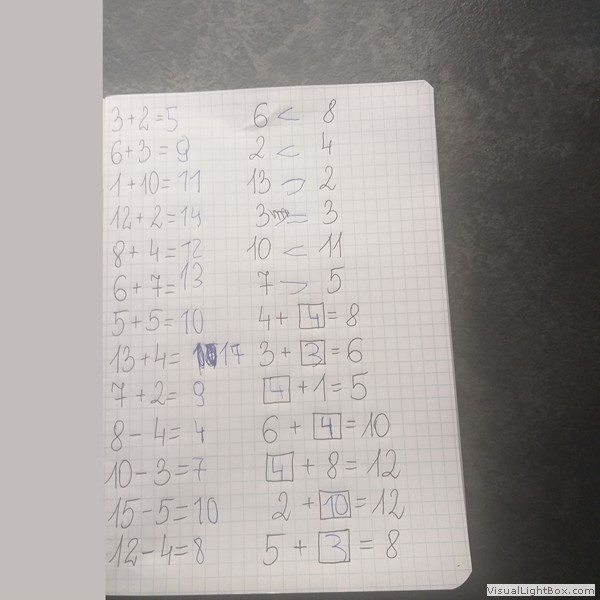 3+2=5
6+3=9
1+10=11
12+2=14
8+4=12
6+7=13
5+5=10
13+4= 17
7+2=9
8-4=4
10-3=7
15-5=10
12-4=8
6 < 8
2 < 4
13 > 2
3 = 3
10 < 11
7 > 5
4+4=8
3+3=6
4+1=5
6+4=10
4+8=12
2+10=12
5+3=8
VisualLightBox.com